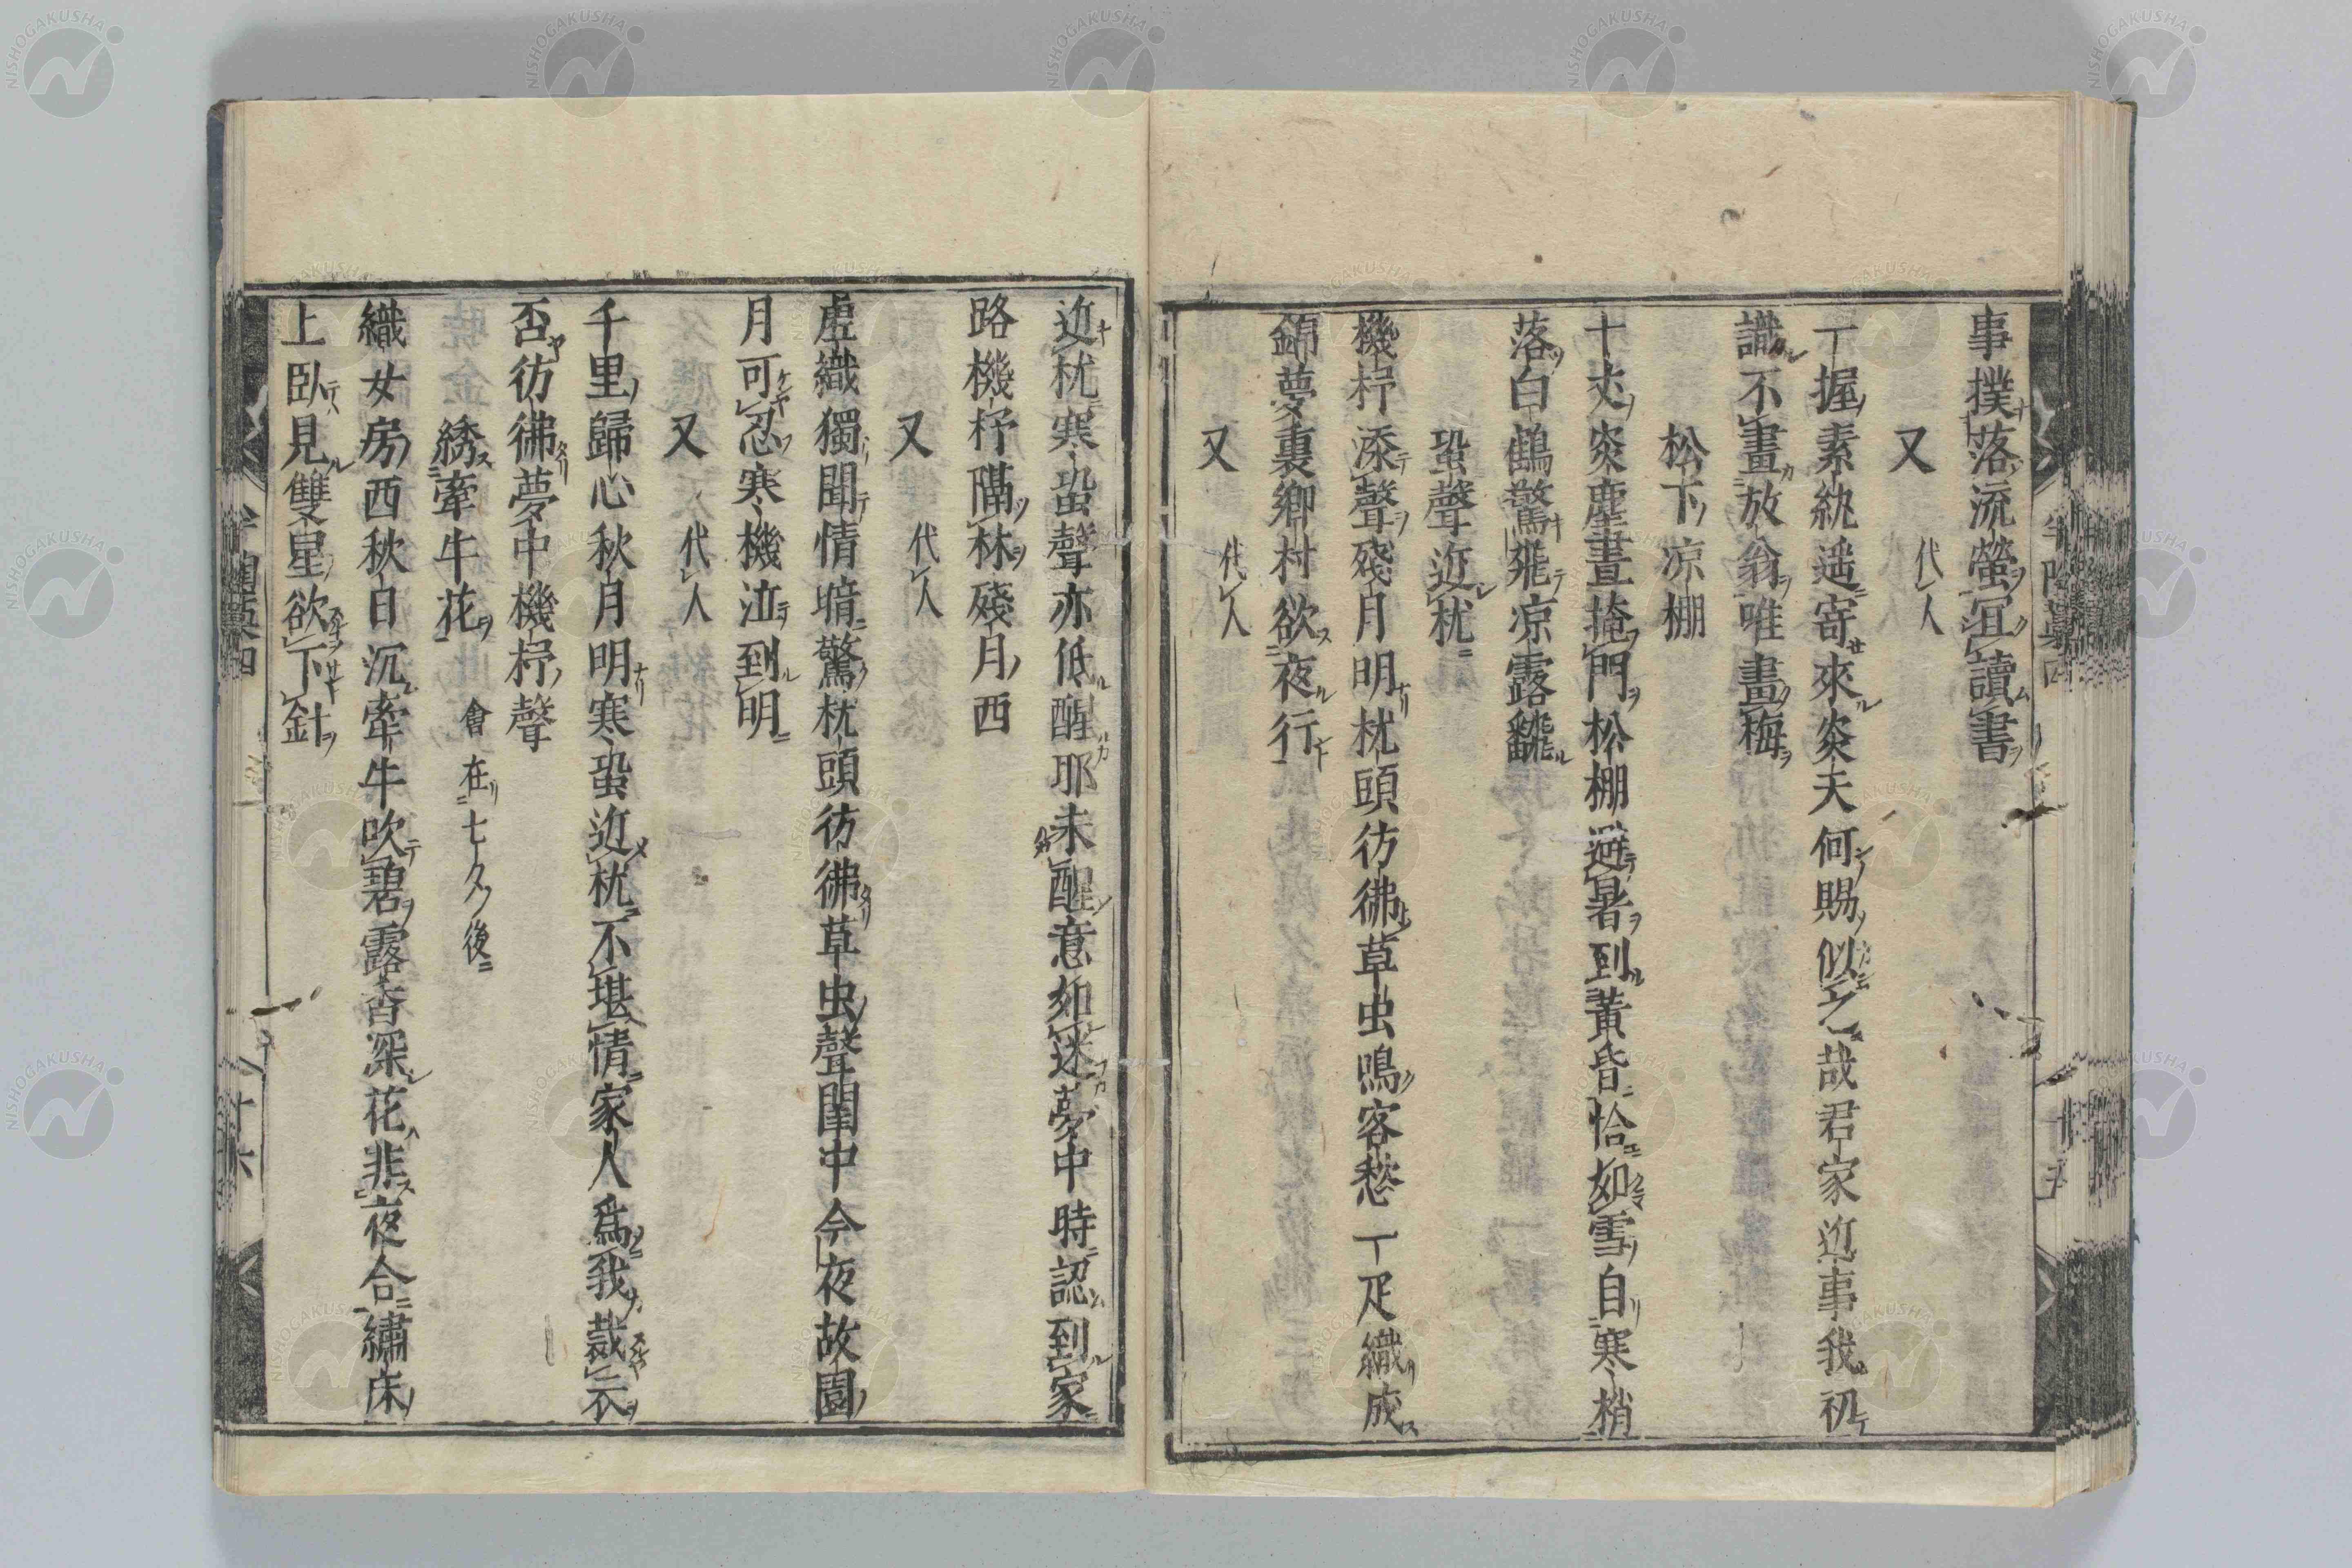 事撲落流螢宜讀書
又　代人
一握素紈遥寄來炎天何賜似之哉君家近事我初
識不畫放翁唯畫梅
松下凉棚
十丈炎塵晝掩門松棚避暑到黄昏恰如雪自寒梢
落白鶴驚飛凉露飜
蛩聲近枕
機杼添聲殘月明枕頭彷彿草虫鳴客愁一疋織成
錦夢裏鄉村欲夜行
又　代人
近枕寒蛩聲亦低醒耶未醒意如迷夢中時認到家
路機杼隔林殘月西
又　代人
虚織獨聞情暗驚枕頭彷彿草虫聲閨中今夜故園
月可忍寒機泣到明
又　代人
千里歸心秋月明寒蛩近枕不堪情家人爲我裁衣
否彷彿夢中機杼聲
綉牽牛花　會在七夕後
織女房西秋日沉牽牛吹碧露香深花非夜合繡床
上臥見雙星欲下針